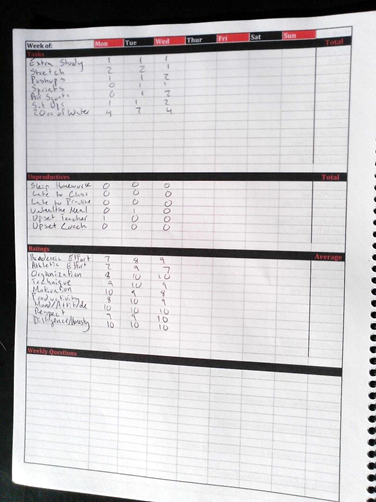 Week of: Mon Tue Wed Thur Fri Sat Sun Total
Tasks
Extra Study 1 1 1
Stretch 2 2 1
Pushups 1 1 2
Sprints 0 1
0 1 2
Sit Ups 1 1 2
20oz of Water 4 4
Unproductives Total
Sleep 0 0 0
Late to Class 0 0 0
Late to 0 0 0
Unhealthy Meal 0 1 0
Upset Teacher 1 0 0
Upset Coach 0 0 0
Ratings Average
Academic Effort 7 8 9
Athletic Effort 7 9 7
Organization 8 10 10
Technique 9 10 9
Motivation 10 9
Productivity 8 10 9
Mood/Attitude
Respect
Diligence/Honesty 10 10 10
Weekly Questions